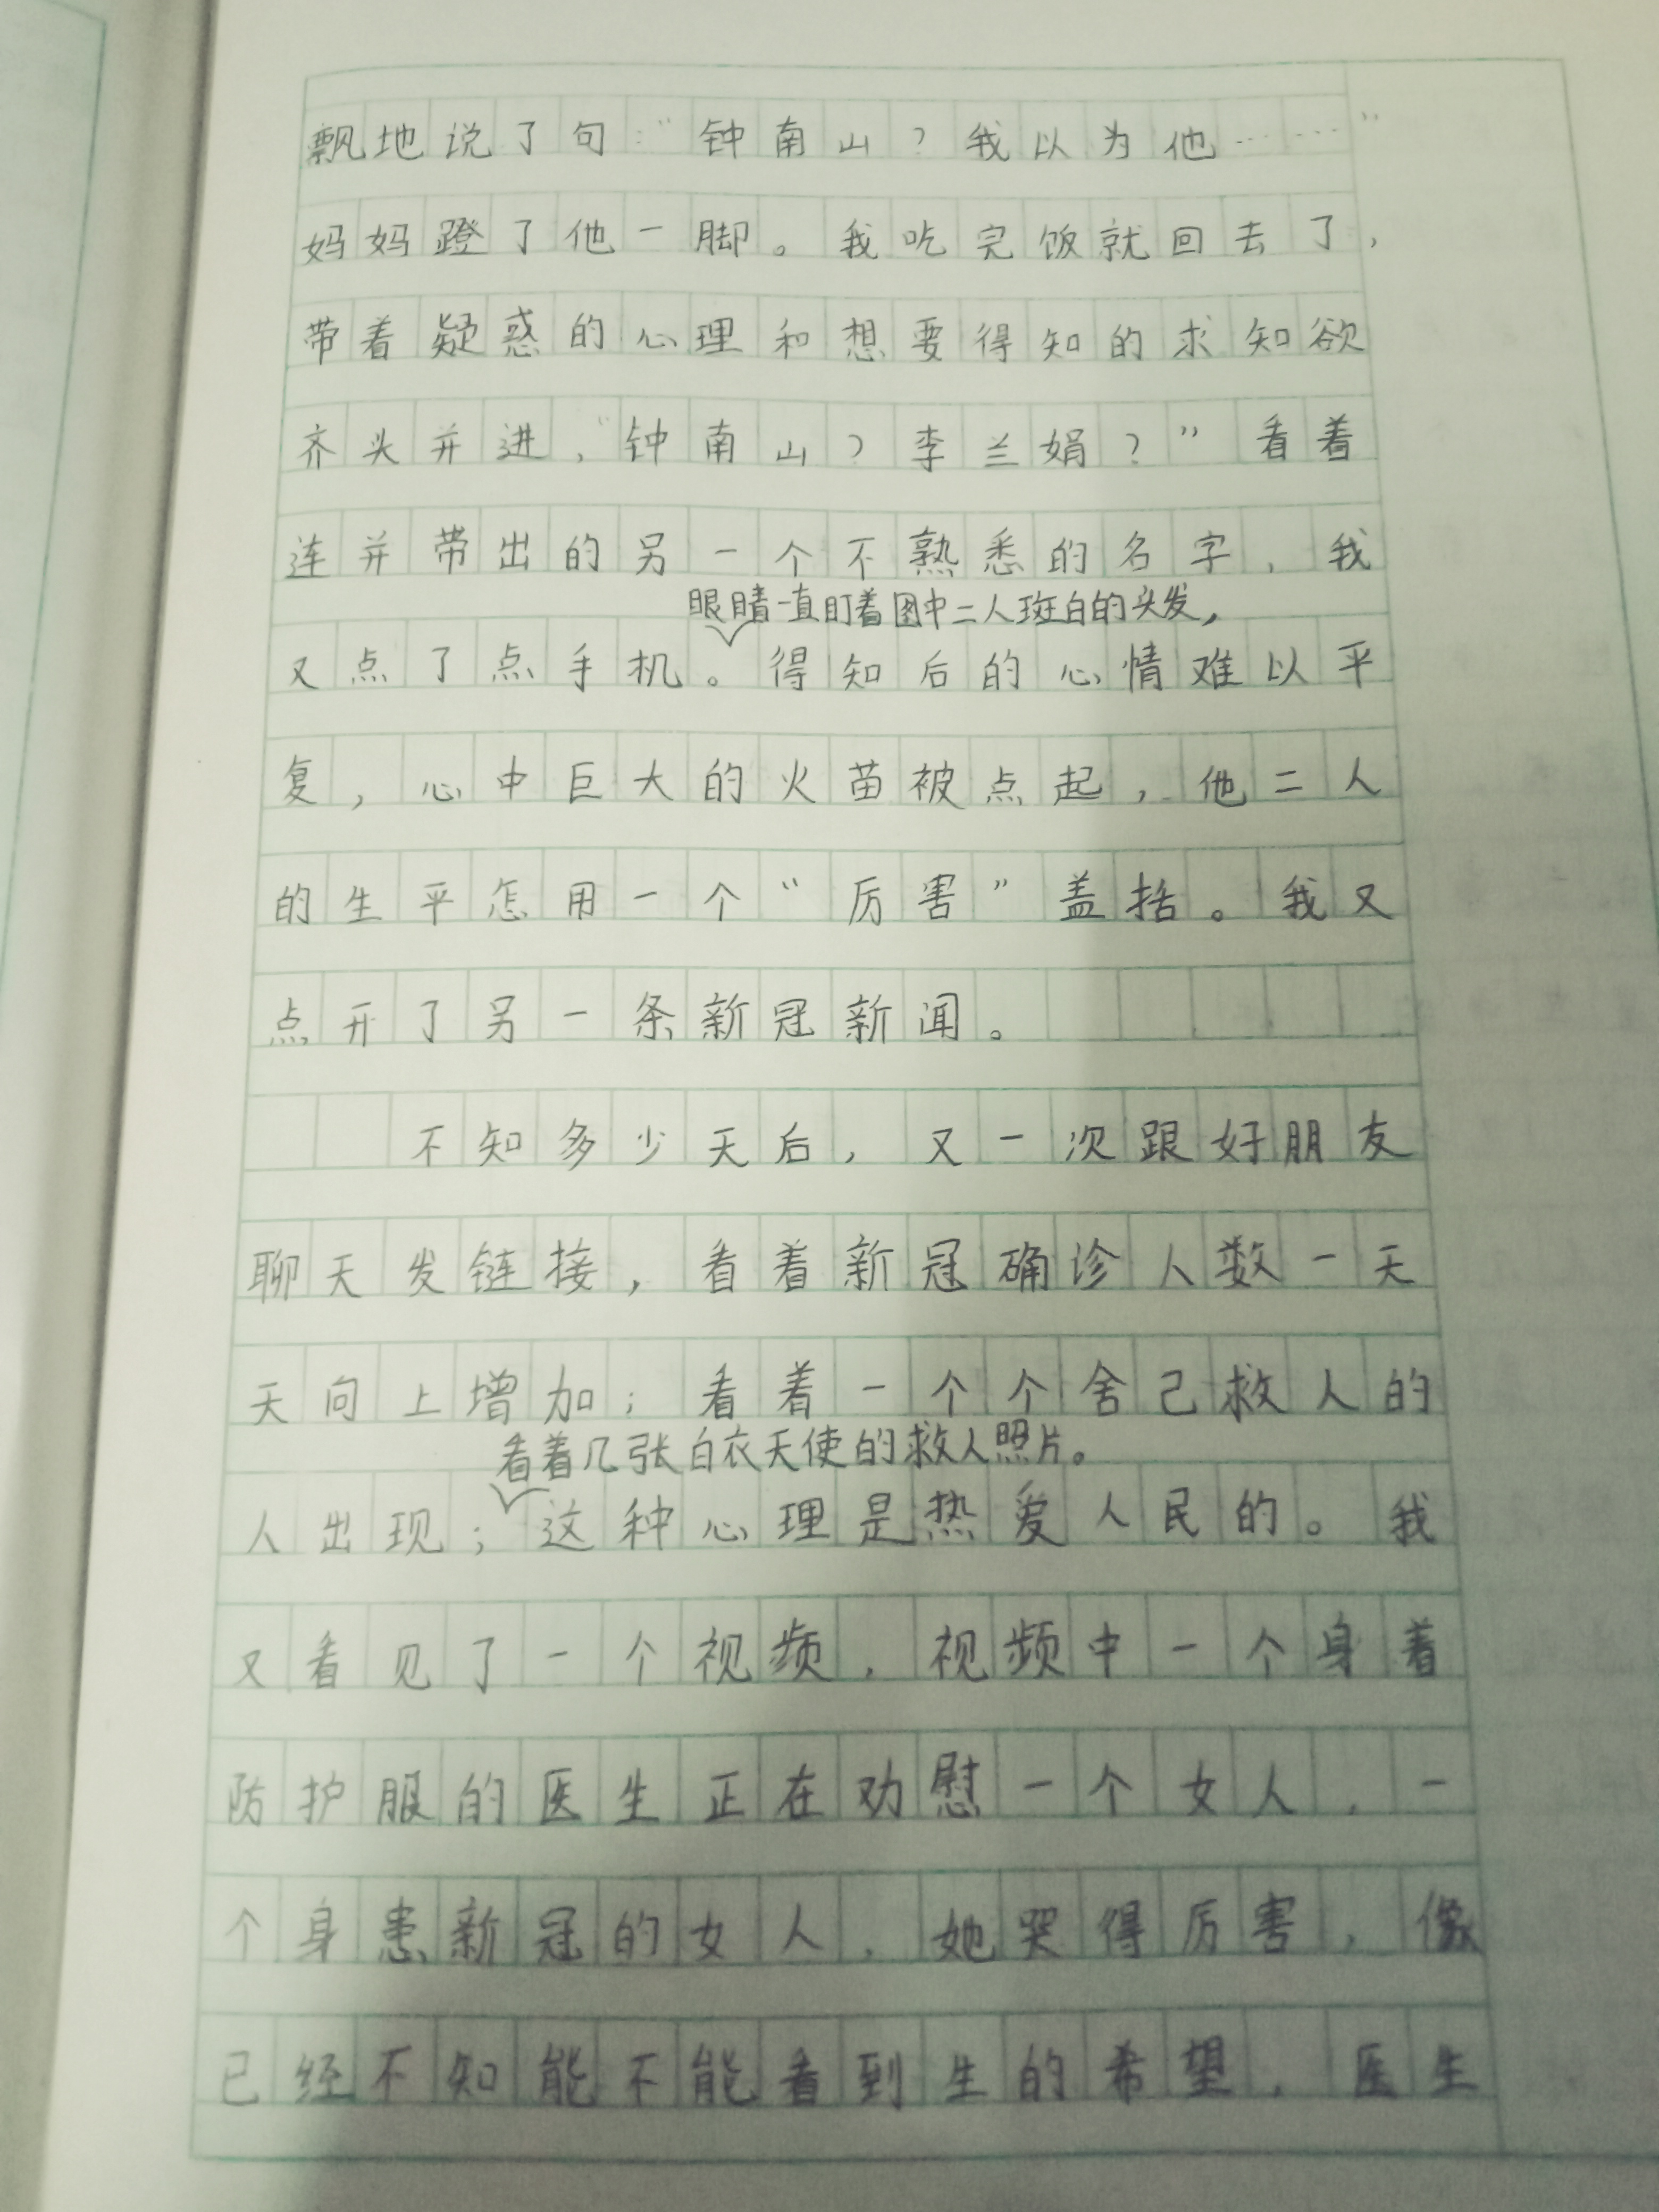 飘地说了句：“钟南山？我以为他……”
妈妈蹬了他一脚。我吃完饭就回去了，
带着疑惑的心理和想要得知的求知欲
齐头并进，“钟南山？李兰娟？”看着
连并带出的另一个不熟悉的名字，我
眼睛一直盯着图中二人斑白的头发，
又点了点手机。得知后的心情难以平
复，心中巨大的火苗被点起，他二人
的生平怎用一个“厉害”盖括。我又
点开了另一条新冠新闻。
不知多少天后，又一次跟好朋友
聊天发链接，看着新冠确诊人数一天
天向上增加；看着一个个舍己救人的
看着几张白衣天使的救人照片。
人出现；这种心理是热爱人民的。我
又看见了一个视频，视频中一个身着
防护服的医生正在劝慰一个女人，一
个身患新冠的女人，她哭得厉害，像
已经不知能不能看到生的希望，医生